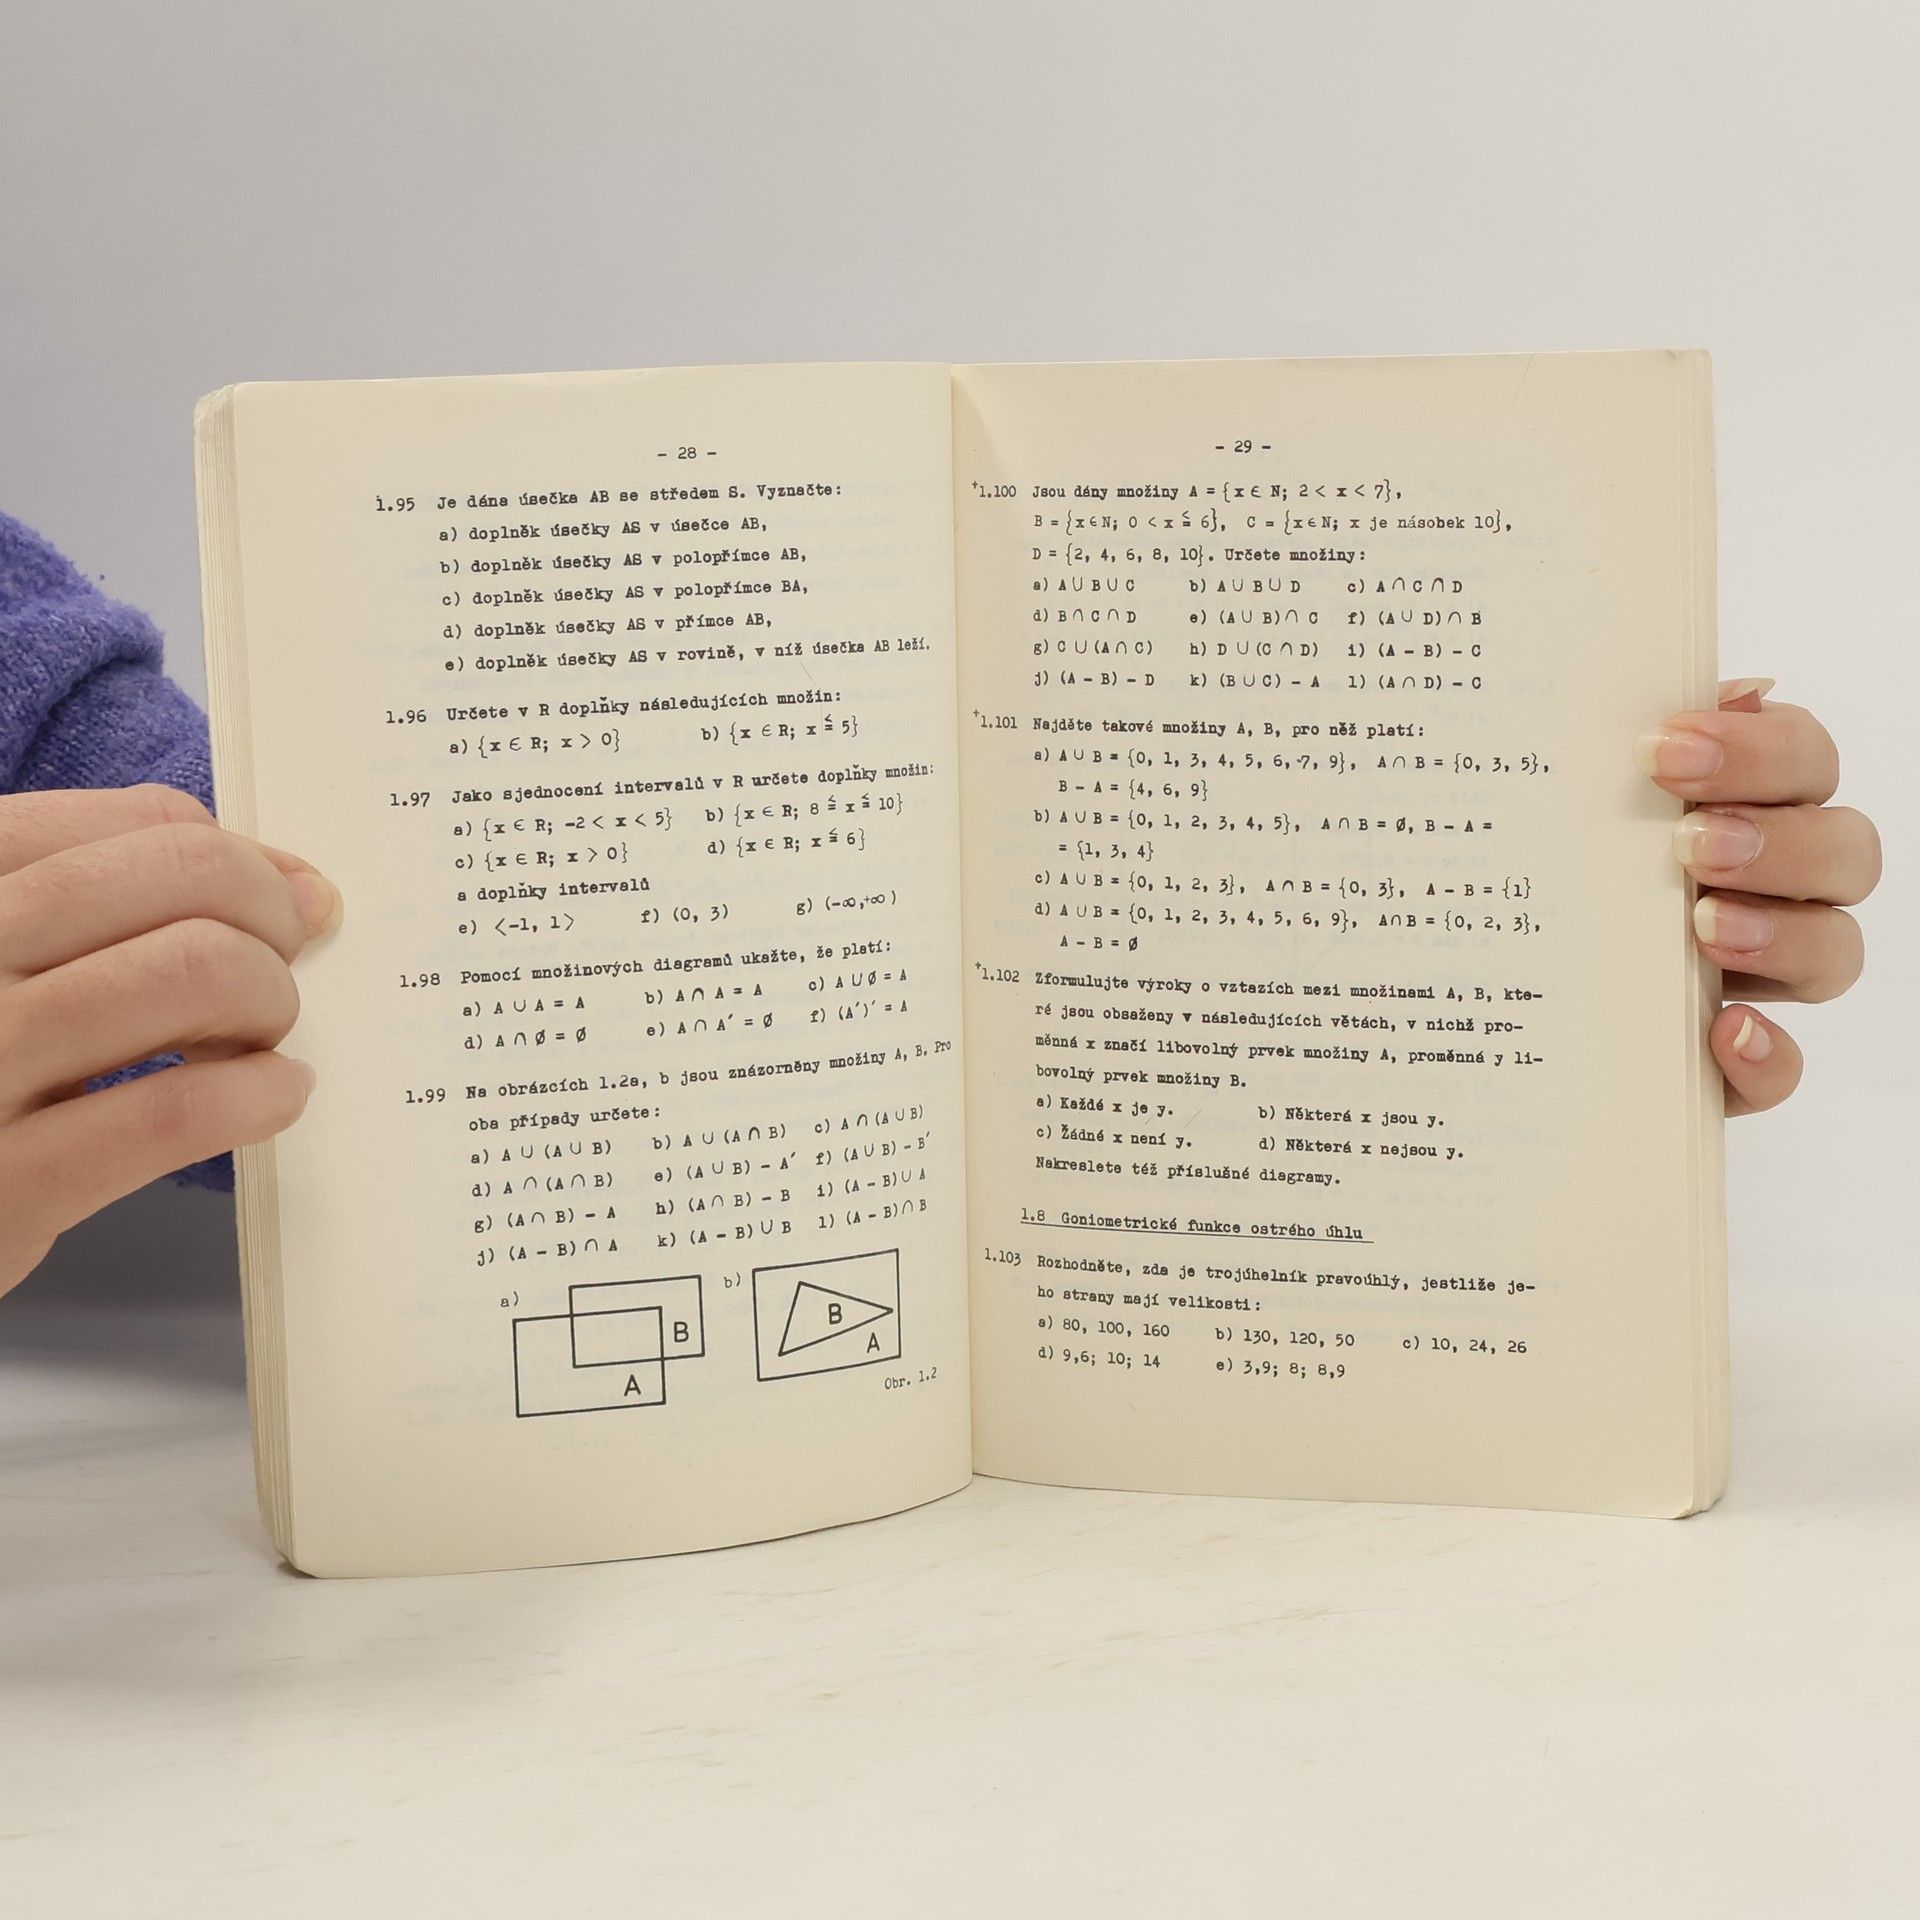 - 28 -
1.95 Je dána úsečka AB se středem S. Vyznačte:
a) doplněk úsečky AS v úsečce AB,
b) doplněk úsečky AS v polopřímce AB,
c) doplněk úsečky AS v polopřímce BA,
d) doplněk úsečky AS v přímce AB,
e) doplněk úsečky AS v rovině, v níž úsečka AB leží.
1.96 Určete v R doplňky následujících množin:
a) {x ∈ R; x > 0} b) {x ∈ R; x ≦ 5}
1.97 Jako sjednocení intervalů v R určete doplňky množin:
a) {x ∈ R; -2 < x < 5} b) {x ∈ R; 8 ≦ x ≦ 10}
c) {x ∈ R; x > 0} d) {x ∈ R; x ≦ 6}
a doplňky intervalů
e) ⟨-1, 1⟩ f) (0, 3) g) (-∞,+∞)
1.98 Pomocí množinových diagramů ukažte, že platí:
a) A ∪ A = A b) A ∩ A = A c) A ∪ Ø = A
d) A ∩ Ø = Ø e) A ∩ A′ = Ø f) (A′)′ = A
1.99 Na obrázcích 1.2a, b jsou znázorněny množiny A, B. Pro
oba případy určete:
a) A ∪ (A ∪ B) b) A ∪ (A ∩ B) c) A ∩ (A ∪ B)
d) A ∩ (A ∩ B) e) (A ∪ B) - A′ f) (A ∪ B) - B′
g) (A ∩ B) - A h) (A ∩ B) - B i) (A - B) ∪ A
j) (A - B) ∩ A k) (A - B) ∪ B l) (A - B) ∩ B
a) b)
B B
A A
Obr. 1.2
- 29 -
+1.100 Jsou dány množiny A = {x ∈ N; 2 < x < 7},
B = {x ∈ N; 0 < x ≦ 6}, C = {x ∈ N; x je násobek 10},
D = {2, 4, 6, 8, 10}. Určete množiny:
a) A ∪ B ∪ C b) A ∪ B ∪ D c) A ∩ C ∩ D
d) B ∩ C ∩ D e) (A ∪ B) ∩ C f) (A ∪ D) ∩ B
g) C ∪ (A ∩ C) h) D ∪ (C ∩ D) i) (A - B) - C
j) (A - B) - D k) (B ∪ C) - A l) (A ∩ D) - C
+1.101 Najděte takové množiny A, B, pro něž platí:
a) A ∪ B = {0, 1, 3, 4, 5, 6, 7, 9}, A ∩ B = {0, 3, 5},
B - A = {4, 6, 9}
b) A ∪ B = {0, 1, 2, 3, 4, 5}, A ∩ B = Ø, B - A =
= {1, 3, 4}
c) A ∪ B = {0, 1, 2, 3}, A ∩ B = {0, 3}, A - B = {1}
d) A ∪ B = {0, 1, 2, 3, 4, 5, 6, 9}, A ∩ B = {0, 2, 3},
A - B = Ø
+1.102 Zformulujte výroky o vztazích mezi množinami A, B, kte-
ré jsou obsaženy v následujících větách, v nichž pro-
měnná x značí libovolný prvek množiny A, proměnná y li-
bovolný prvek množiny B.
a) Každé x je y. b) Některá x jsou y.
c) Žádné x není y. d) Některá x nejsou y.
Nakreslete též příslušné diagramy.
1.8 Goniometrické funkce ostrého úhlu
1.103 Rozhodněte, zda je trojúhelník pravoúhlý, jestliže je-
ho strany mají velikosti:
a) 80, 100, 160 b) 130, 120, 50 c) 10, 24, 26
d) 9,6; 10; 14 e) 3,9; 8; 8,9